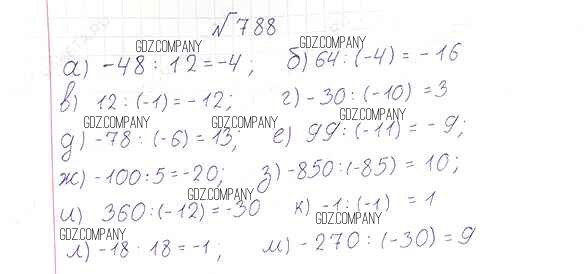 №788
GDZ.COMPANY GDZ.COMPANY
а) -48 : 12 = -4; б) 64 : (-4) = -16
в) 12 : (-1) = -12; г) -30 : (-10) = 3
GDZ.COMPANY GDZ.COMPANY GDZ.COMPANY
д) -78 : (-6) = 13; е) 99 : (-11) = -9;
ж) -100 : 5 = -20; з) -850 : (-85) = 10;
GDZ.COMPANY
и) 360 : (-12) = -30 к) -1 : (-1) = 1
GDZ.COMPANY GDZ.COMPANY
л) -18 : 18 = -1; м) -270 : (-30) = 9